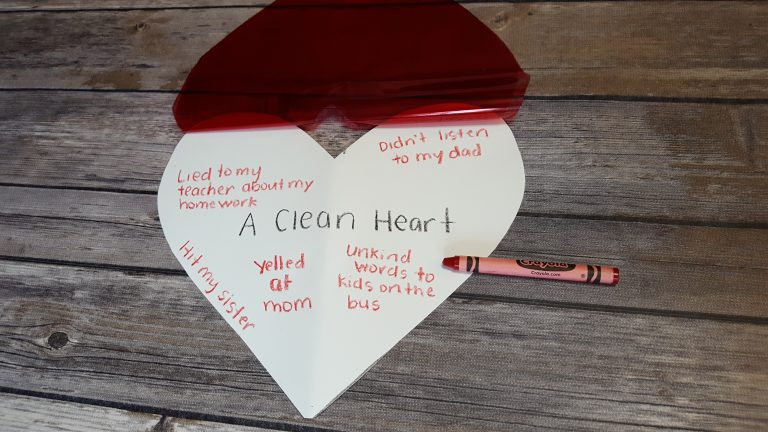 Didn't listen
to my dad
Lied to my
teacher about my
homework
A Clean Heart
Hit my sister
Yelled
at
mom
Unkind
words to
kids on the
bus
Crayola
Crayola.com